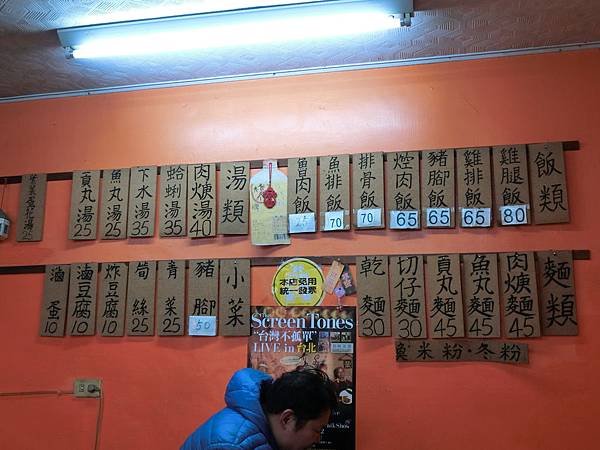 飯類
雞腿飯 80
雞排飯 65
豬腳飯 65
焢肉飯 65
排骨飯 70
魚排飯 70
魯肉飯
湯類
肉焿湯 40
蛤蜊湯 35
下水湯 35
魚丸湯 25
貢丸湯 25
麵類
肉焿麵 45
魚丸麵 45
貢丸麵 45
切仔麵 30
乾麵 30
米粉·冬粉
本店免用
統一發票
小菜
豬腳 50
青菜 25
筍絲 25
炸豆腐 10
滷豆腐 10
滷蛋 10
THE ScreenTones
"台灣不孤單"
LIVE in 台北